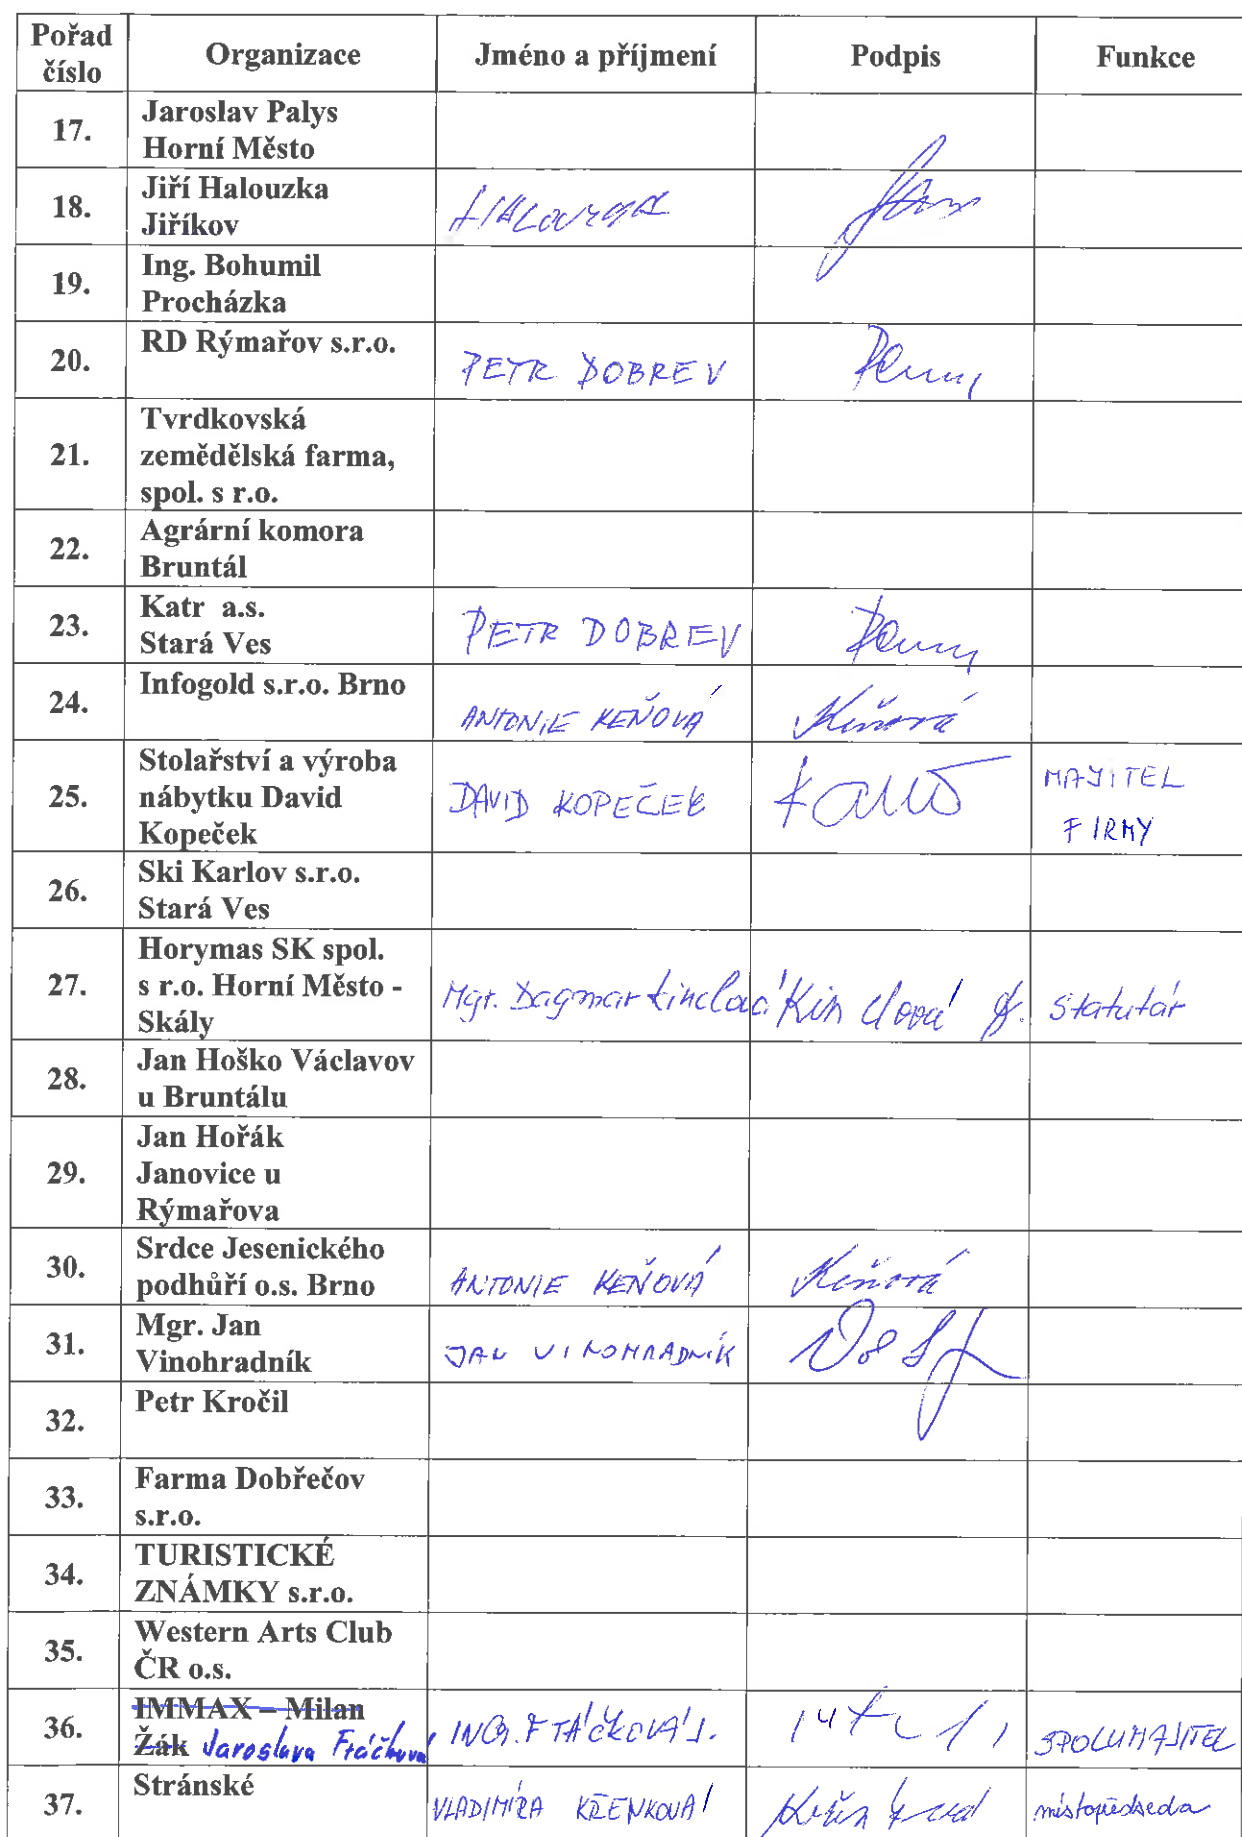 Pořad číslo Organizace Jméno a příjmení Podpis Funkce
17. Jaroslav Palys
Horní Město
18. Jiří Halouzka
Jiříkov
19. Ing. Bohumil
Procházka
20. RD Rýmařov s.r.o. PETR DOBREV
21. Tvrdkovská
zemědělská farma,
spol. s r.o.
22. Agrární komora
Bruntál
23. Katr a.s.
Stará Ves PETR DOBREV
24. Infogold s.r.o. Brno
ANTONIE KEŇOVÁ Keňová
25. Stolařství a výroba
nábytku David
Kopeček DAVID KOPEČEK MAJITEL
FIRMY
26. Ski Karlov s.r.o.
Stará Ves
27. Horymas SK spol.
s r.o. Horní Město -
Skály Mgr. Dagmar Kinclová Kinclová statutár
28. Jan Hoško Václavov
u Bruntálu
29. Jan Hořák
Janovice u
Rýmařova
30. Srdce Jesenického
podhůří o.s. Brno ANTONIE KEŇOVÁ Keňová
31. Mgr. Jan
Vinohradník JAN VINOHRADNÍK
32. Petr Kročil
33. Farma Dobřečov
s.r.o.
34. TURISTICKÉ
ZNÁMKY s.r.o.
35. Western Arts Club
ČR o.s.
36. IMMAX – Milan
Žák Jaroslava Ftáčková ING. FTÁČKOVÁ J. SPOLUMAJITEL
37. Stránské VLADIMÍRA KŘENKOVÁ místopředseda